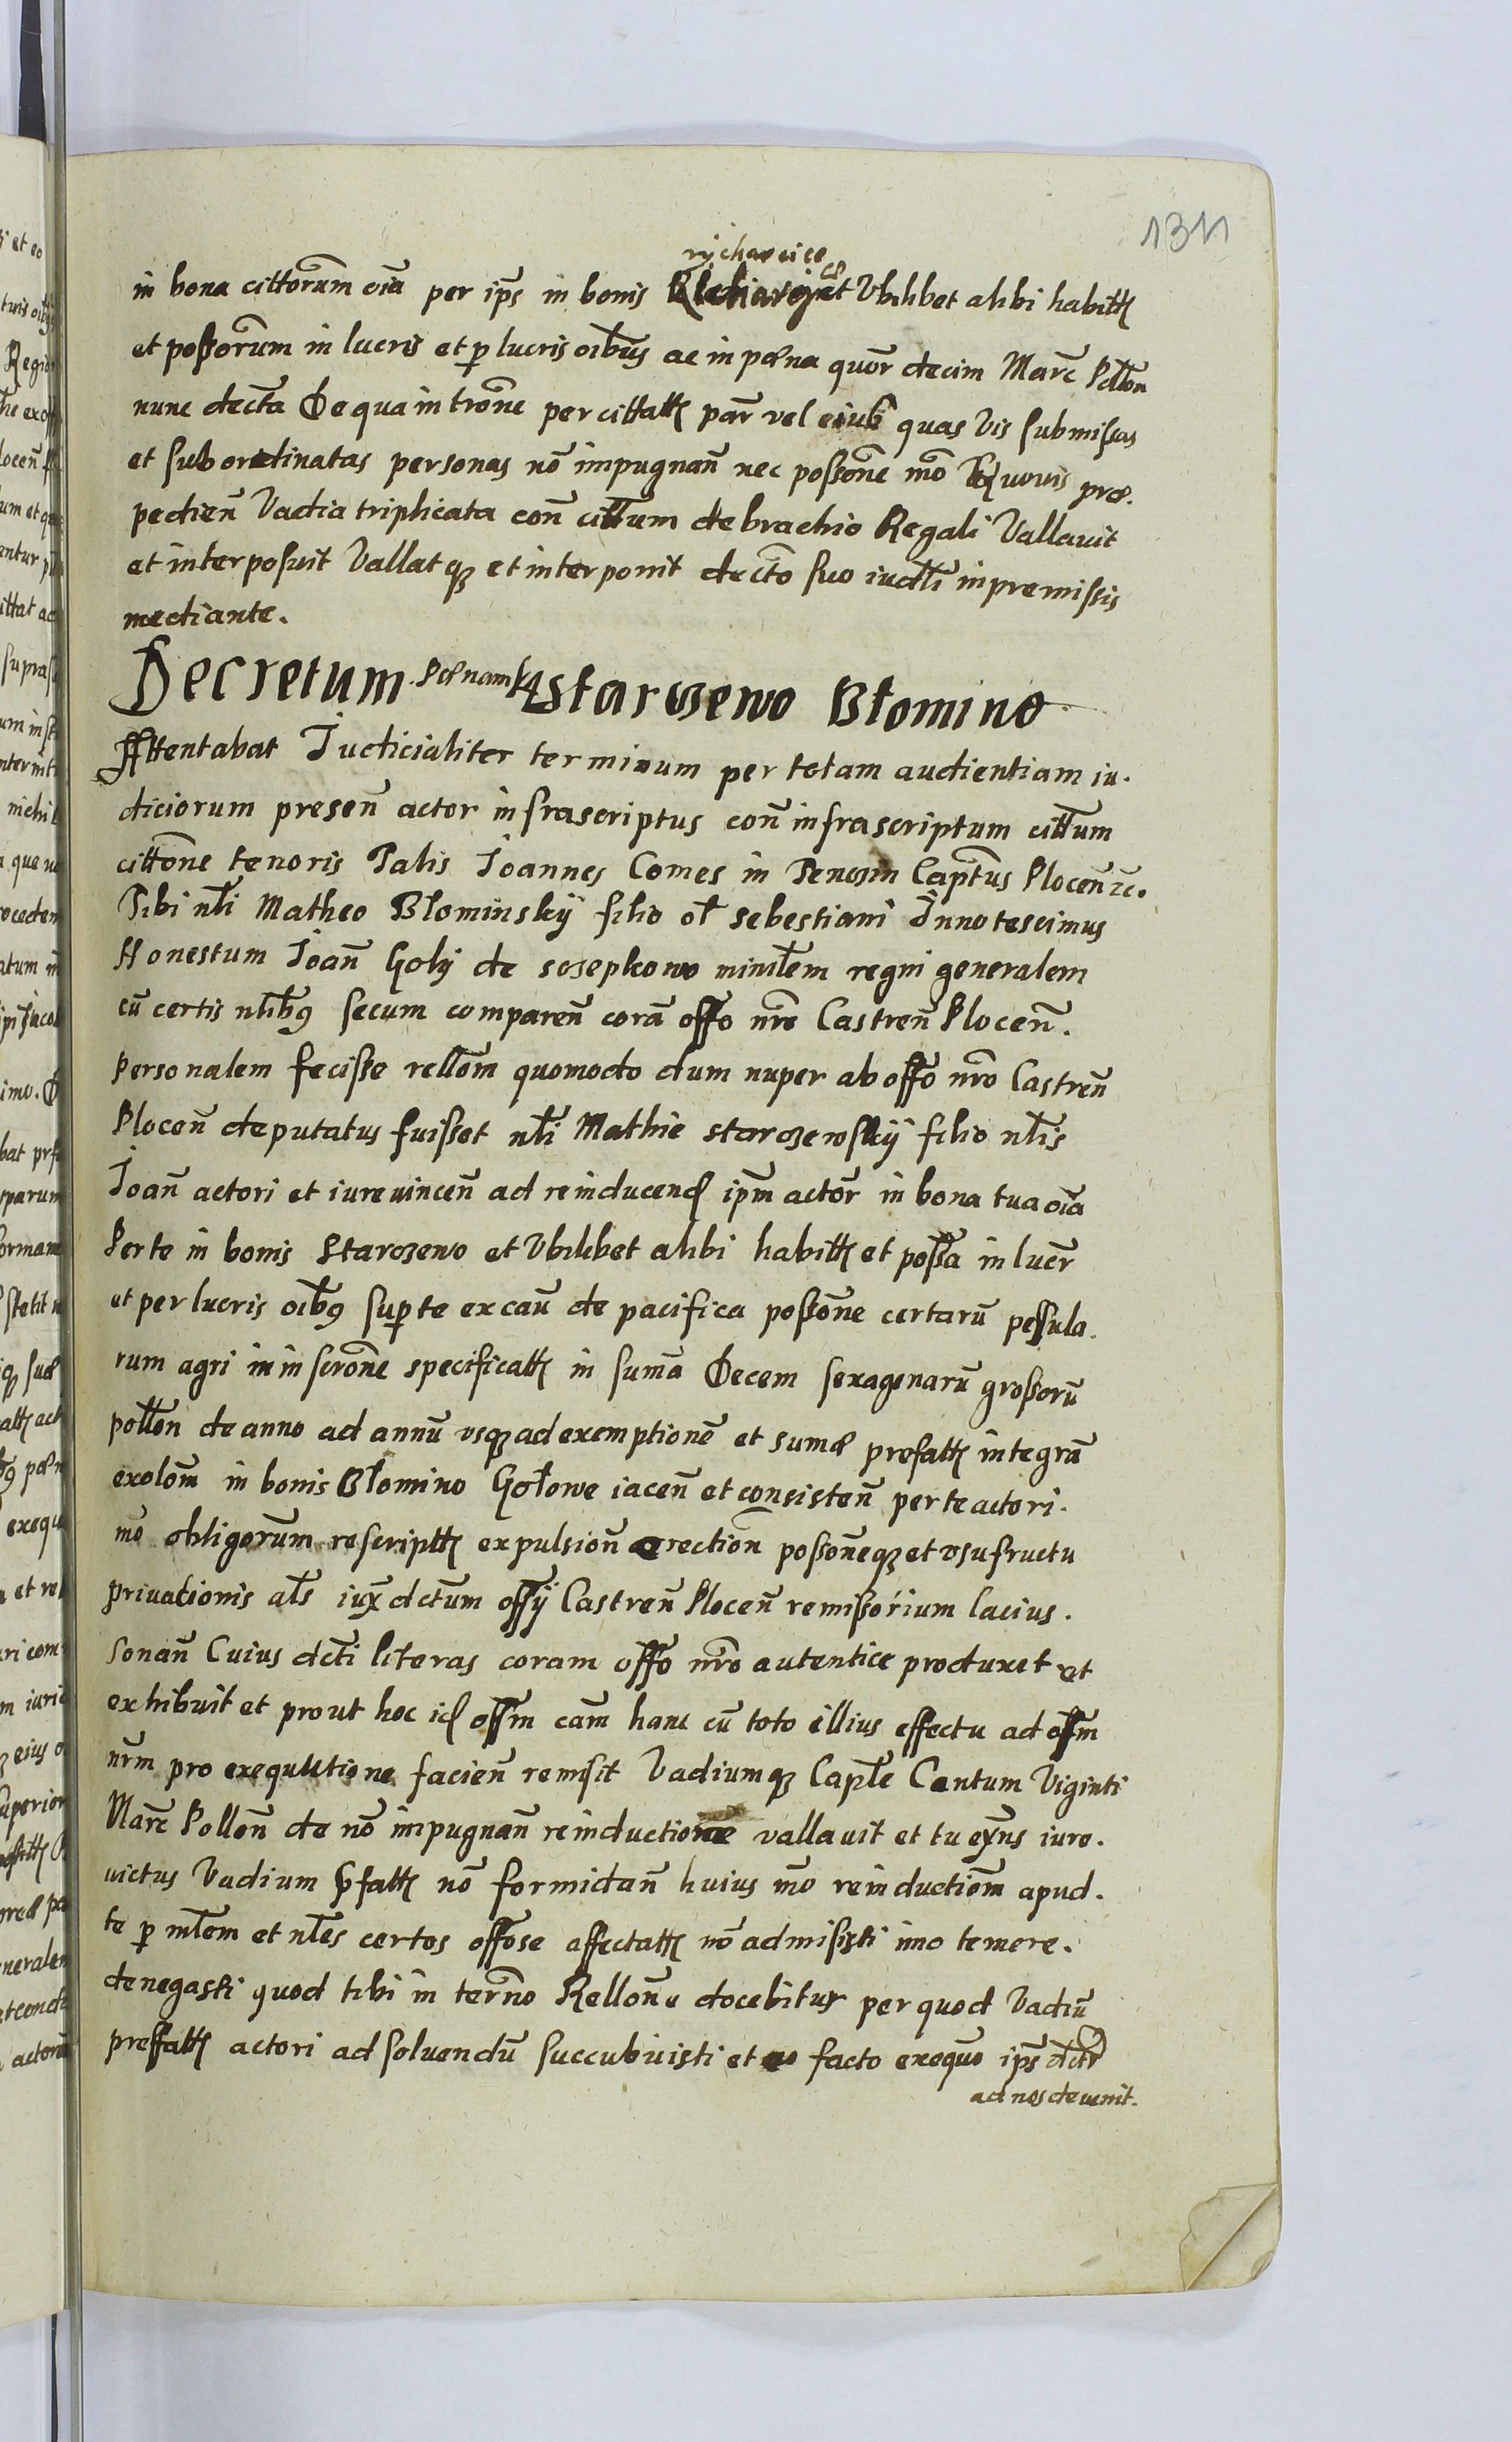 1311
rÿcharcice
in bona cittorum oīa per ip̄s in bonis et Vbilibet alibi habitt
et possorum in lucris et p lucris oībus ac in pœna quor decim Marc Pollon
nunc decta De qua introne per cittatt par vel eius quas vis submissas
et subordinatas personas nō impugnan̄ nec possone mō quouis præ.
pedien̄ Vadia triplicata con̄ cittum de brachio Regali Vallauit
et interposuit Vallatq et interponit decto suo iudtli in premissis
mediante.
Decretum Pœnam Starozewo Błomino
Attentabat Judicialiter terminum per totam audientiam iu.
diciorum presen̄ actor infrascriptus con̄ infrascriptum cittum
cittone tenoris Talis Joannes Comes in Tenczin Captus Plocen̄ zc.
Tibi nli Matheo Błominskÿ filio ol sebestiani Innotescimus
Honestum Joan̄ Golÿ de sosepkowo minilem regni generalem
cū certis nlibg secum comparen̄ corā offo nro Castren̄ Plocen̄.
Personalem fecisse rellom̄ quomodo dum nuper ab offo nro Castren̄
Plocen̄ deputatus fuisset nli Mathie starozewskÿ filio nlis
Joan̄ actori et iureuincen̄ ad reinducend ipm̄ actor̄ in bona tua oīa
Per te in bonis Starozewo et Vbilibet alibi habitt et possa in lucr
et per lucris oibg sup te ex cau de pacifica possone certarū pessula.
rum agri in inscrone specificatt in suma Decem sexagenarū grossorū
pollon de anno ad annū vsq ad exemptionē et sumæ prefatt integrā
exolom in bonis Błomino Gołowe iacen̄ et consisten̄ per te actori.
mō obligorum rescriptt expulsion̄ erection possoneq et vsufructu
priuationis als iux dctum offÿ Castren̄ Plocen̄ remissorium lacius.
sonan̄ Cuius dcti literas coram offo nro autentice produxit et
exhibuit et prout hoc id offm cam̄ hanc cū toto illius effectu ad offm
nrm pro exequutione facien̄ remisit Vadiumq Caple Centum Viginti
Marc Pollon̄ de nō impugnan̄ reinductione vallauit et tu exns iure.
uictus Vadium pfatt nō formidan̄ huius mō reinductiom̄ apud.
te p mlem et nles certos offose affectatt nō admisisti imo temere.
denegasti quod tibi in terno Rellone docebitur per quod Vadiū
prefatt actori ad soluendū succubuisti et eo facto exequo ips dctr
ad nos deuenit.